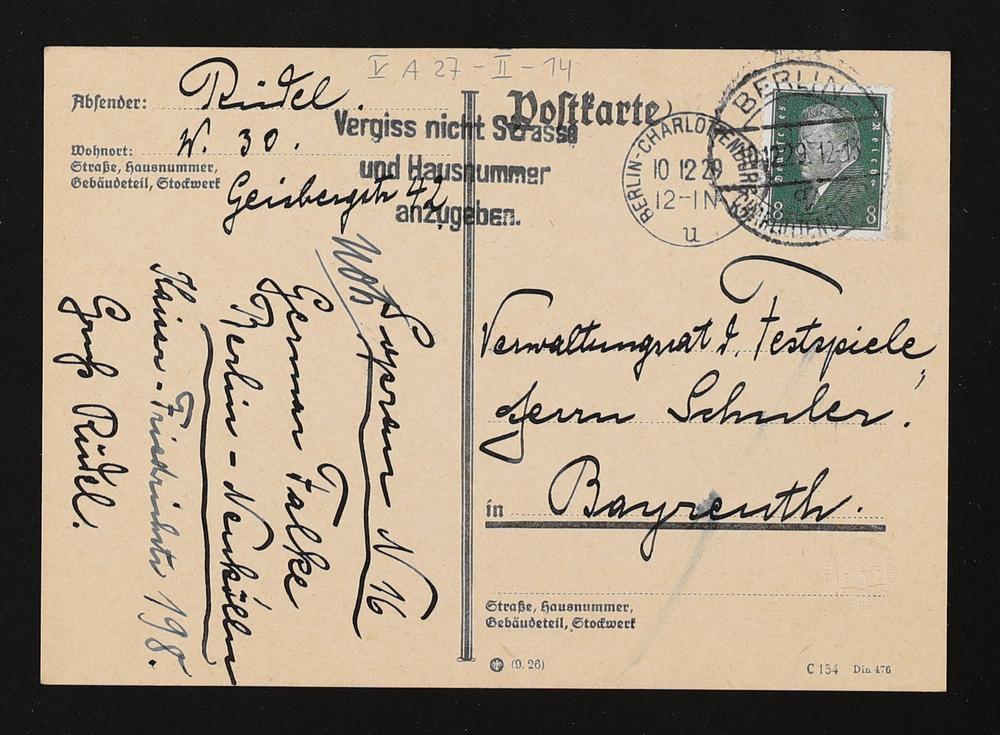 V A 27 - II - 14
Absender: Rüdel.
Wohnort: W. 30.
Straße, Hausnummer,
Gebäudeteil, Stockwerk
Geisbergstr 42
Postkarte
Vergiss nicht Strasse
und Hausnummer
anzugeben.
BERLIN-CHARLOTTENBURG
10 12 29
12-1N
u
BERLIN
CHARLOTTENBURG
Deutsches Reich
8 8
Sopran N 16
German Falke
Berlin - Neukölln
Kaiser-Friedrichstr 198.
Gruß Rüdel.
Verwaltungsrat d. Festspiele,
Herrn Schuler.
in Bayreuth.
Straße, Hausnummer,
Gebäudeteil, Stockwerk
(9. 26)
C 154 Din 476